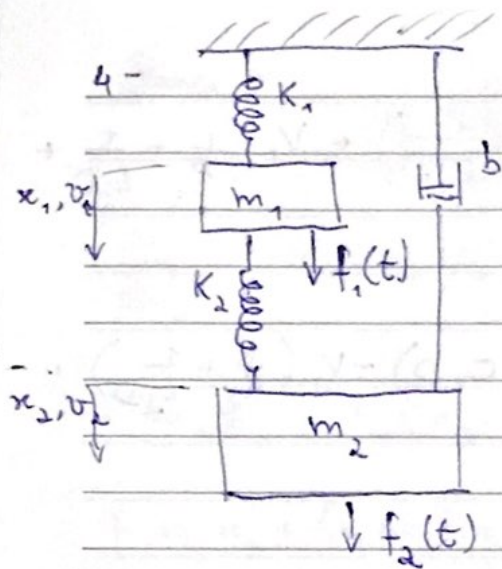 4-
K₁
b
x₁, v₁
m₁
f₁(t)
K₂
x₂, v₂
m₂
f₂(t)